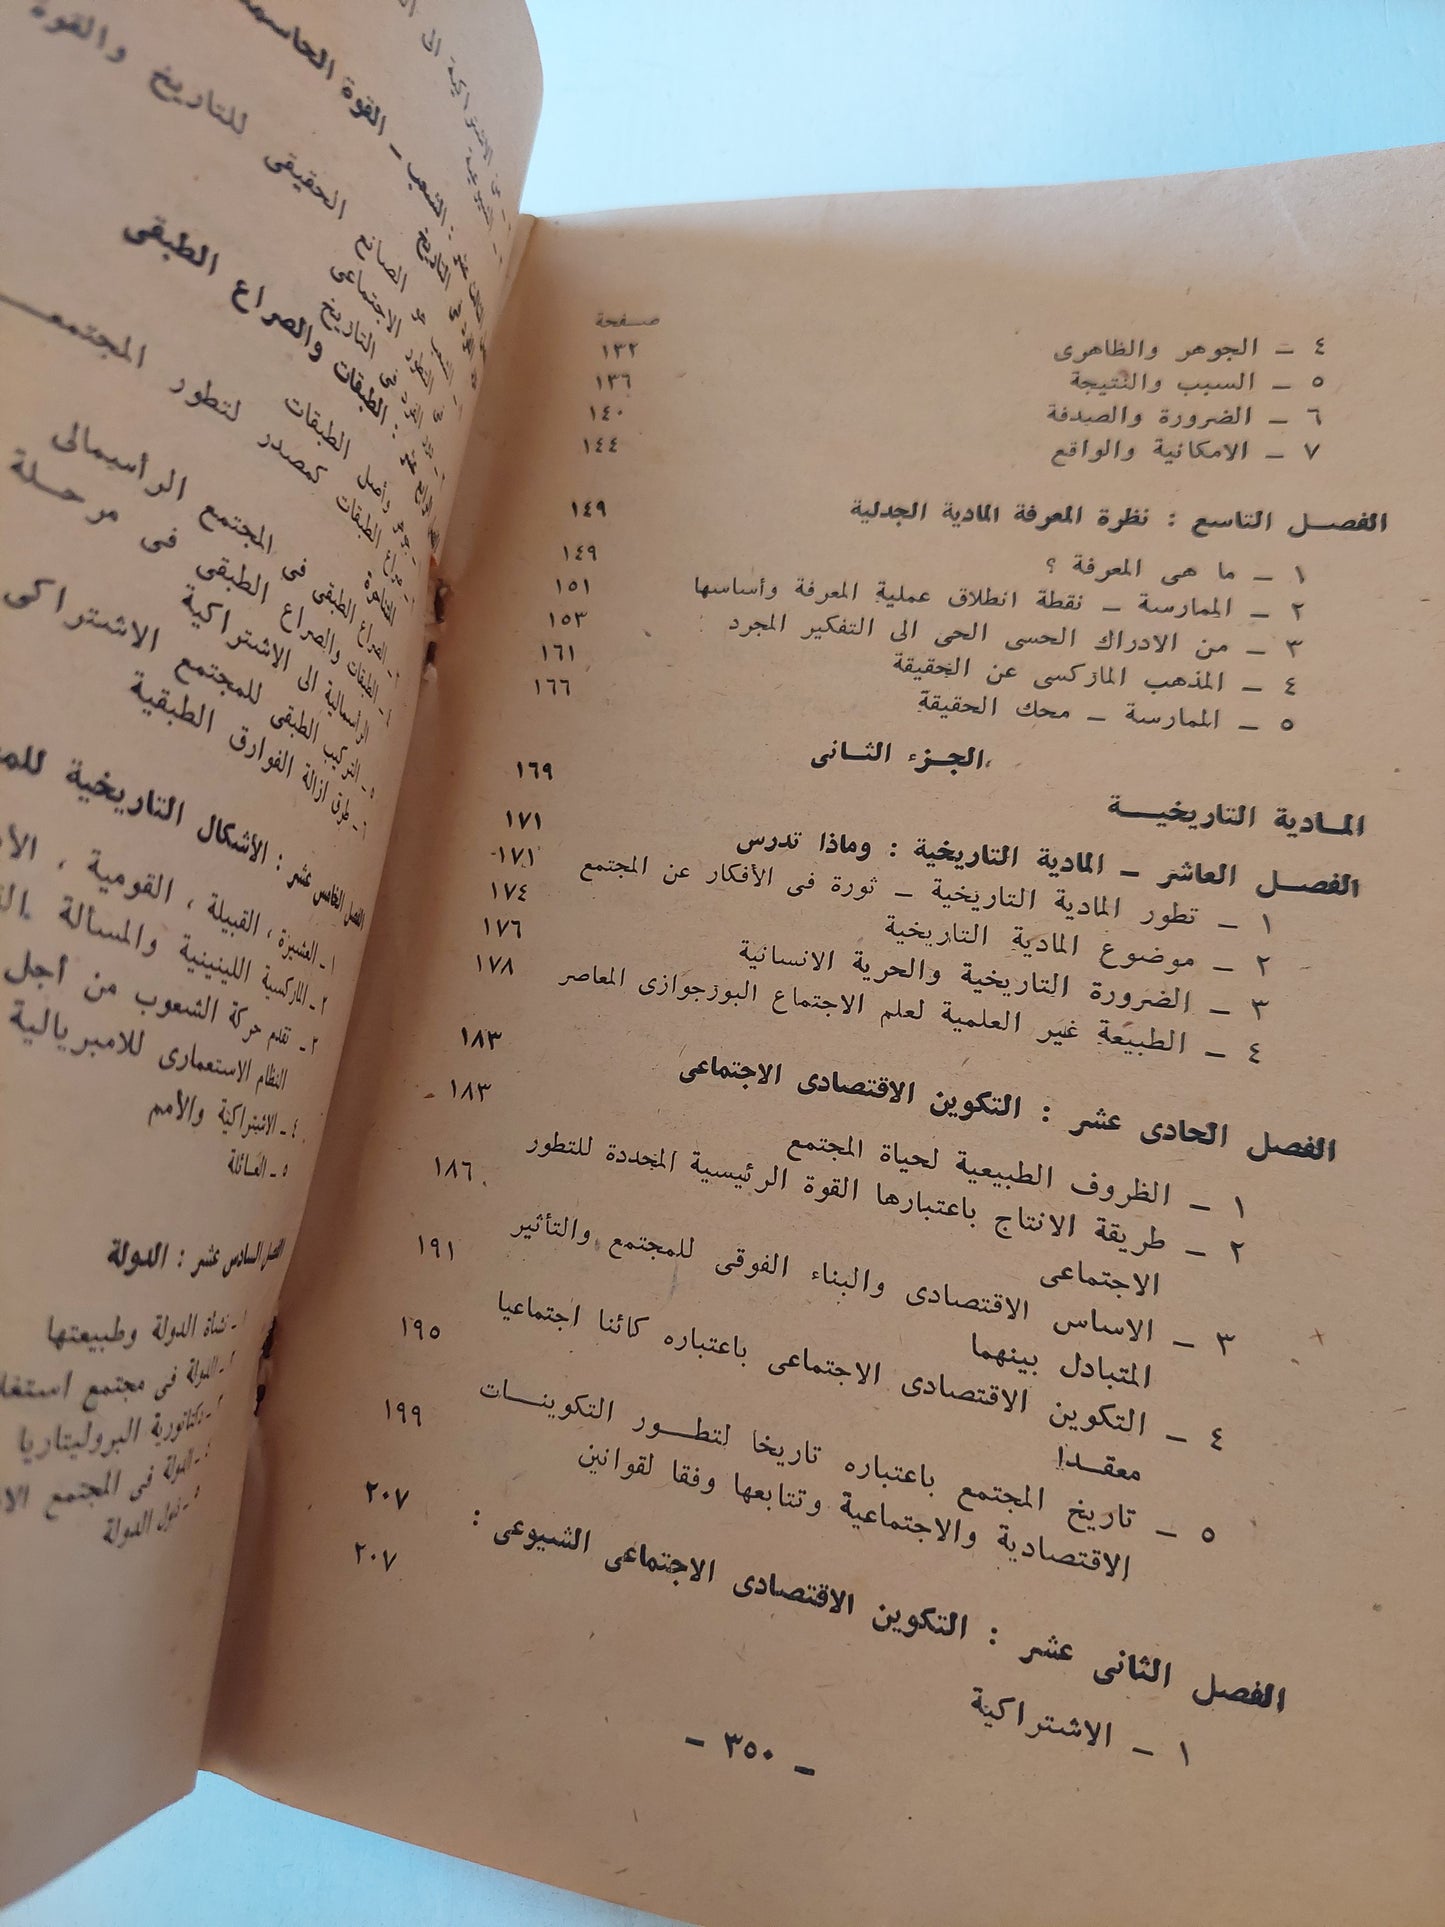 صفحة
٤ ـ الجوهر والظاهرى ١٣٢
٥ ـ السبب والنتيجة ١٣٦
٦ ـ الضرورة والصدفة ١٤٠
٧ ـ الامكانية والواقع ١٤٤
الفصل التاسع : نظرة المعرفة المادية الجدلية ١٤٩
١ ـ ما هى المعرفة ؟ ١٤٩
٢ ـ الممارسة ـ نقطة انطلاق عملية المعرفة وأساسها ١٥١
٣ ـ من الادراك الحسى الحى الى التفكير المجرد ١٥٣
٤ ـ المذهب الماركسى عن الحقيقة ١٦١
٥ ـ الممارسة ـ محك الحقيقة ١٦٦
الجزء الثانى
المادية التاريخية ١٦٩
الفصل العاشر ـ المادية التاريخية : وماذا تدرس ١٧١
١ ـ تطور المادية التاريخية ـ ثورة فى الأفكار عن المجتمع ١٧١
٢ ـ موضوع المادية التاريخية ١٧٤
٣ ـ الضرورة التاريخية والحرية الانسانية ١٧٦
٤ ـ الطبيعة غير العلمية لعلم الاجتماع البورجوازى المعاصر ١٧٨
الفصل الحادى عشر : التكوين الاقتصادى الاجتماعى ١٨٣
١ ـ الظروف الطبيعية لحياة المجتمع ١٨٣
٢ ـ طريقة الانتاج باعتبارها القوة الرئيسية المحددة للتطور
الاجتماعى ١٨٦
٣ ـ الاساس الاقتصادى والبناء الفوقى للمجتمع والتأثير
المتبادل بينهما ١٩١
٤ ـ التكوين الاقتصادى الاجتماعى باعتباره كائنا اجتماعيا
معقدا ١٩٥
٥ ـ تاريخ المجتمع باعتباره تاريخا لتطور التكوينات
الاقتصادية والاجتماعية وتتابعها وفقا لقوانين ١٩٩
الفصل الثانى عشر : التكوين الاقتصادى الاجتماعى الشيوعى : ٢٠٧
١ ـ الاشتراكية ٢٠٧
ـ ٣٥٠ ـ
الشعب ـ القوة
الشعب هو الصانع الحقيقى للتاريخ والقوة
فى التطور الاجتماعى
دور الفرد فى التاريخ
: الطبقات والصراع الطبقى
وأصل الطبقات
صراع الطبقات كمصدر لتطور
الصراع الطبقى فى المجتمع الرأسيمالى
الطبقات والصراع الطبقى فى مرحلة
الرأسمالية الى الاشتراكية
٥ ـ التركيب الطبقى للمجتمع الاشتراكى
٦ ـ طرق ازالة الفوارق الطبقية
الفصل الخامس عشر : الأشكال التاريخية
١ ـ العشيرة ، القبيلة ، القومية ،
٢ ـ الماركسية اللينينية والمسألة
٣ ـ تقدم حركة الشعوب من أجل
النظام الاستعمارى للامبريالية
٤ ـ الاشتراكية والأمم
٥ ـ العائلة
الفصل السادس عشر : الدولة
١ ـ نشأة الدولة وطبيعتها
٢ ـ الدولة فى مجتمع
٣ ـ دكتاتورية البروليتاريا
٤ ـ الدولة فى المجتمع
٥ ـ ذبول الدولة